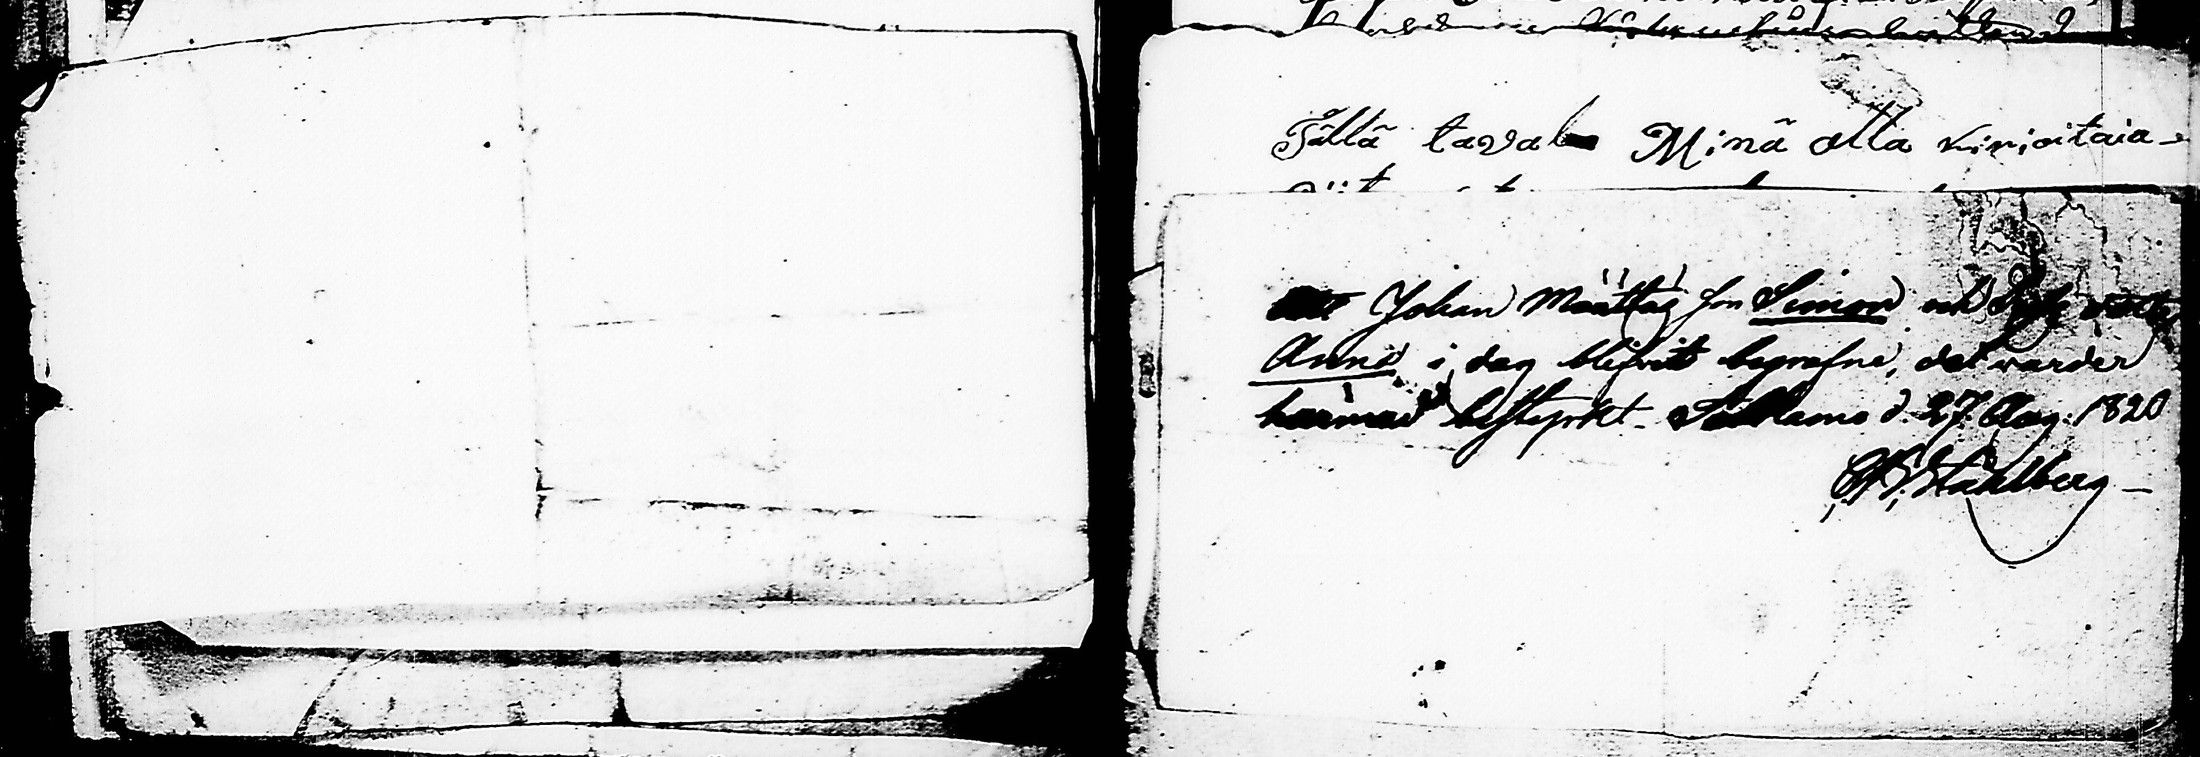 Tällä taval Minä alla kirjoitaia
Att Johan Määttäs son Simon och
Anna i dag blifvit begrafne, det varder
härmed bestyrkt. Sotkamo d. 27 Aug. 1820
Ståhlberg